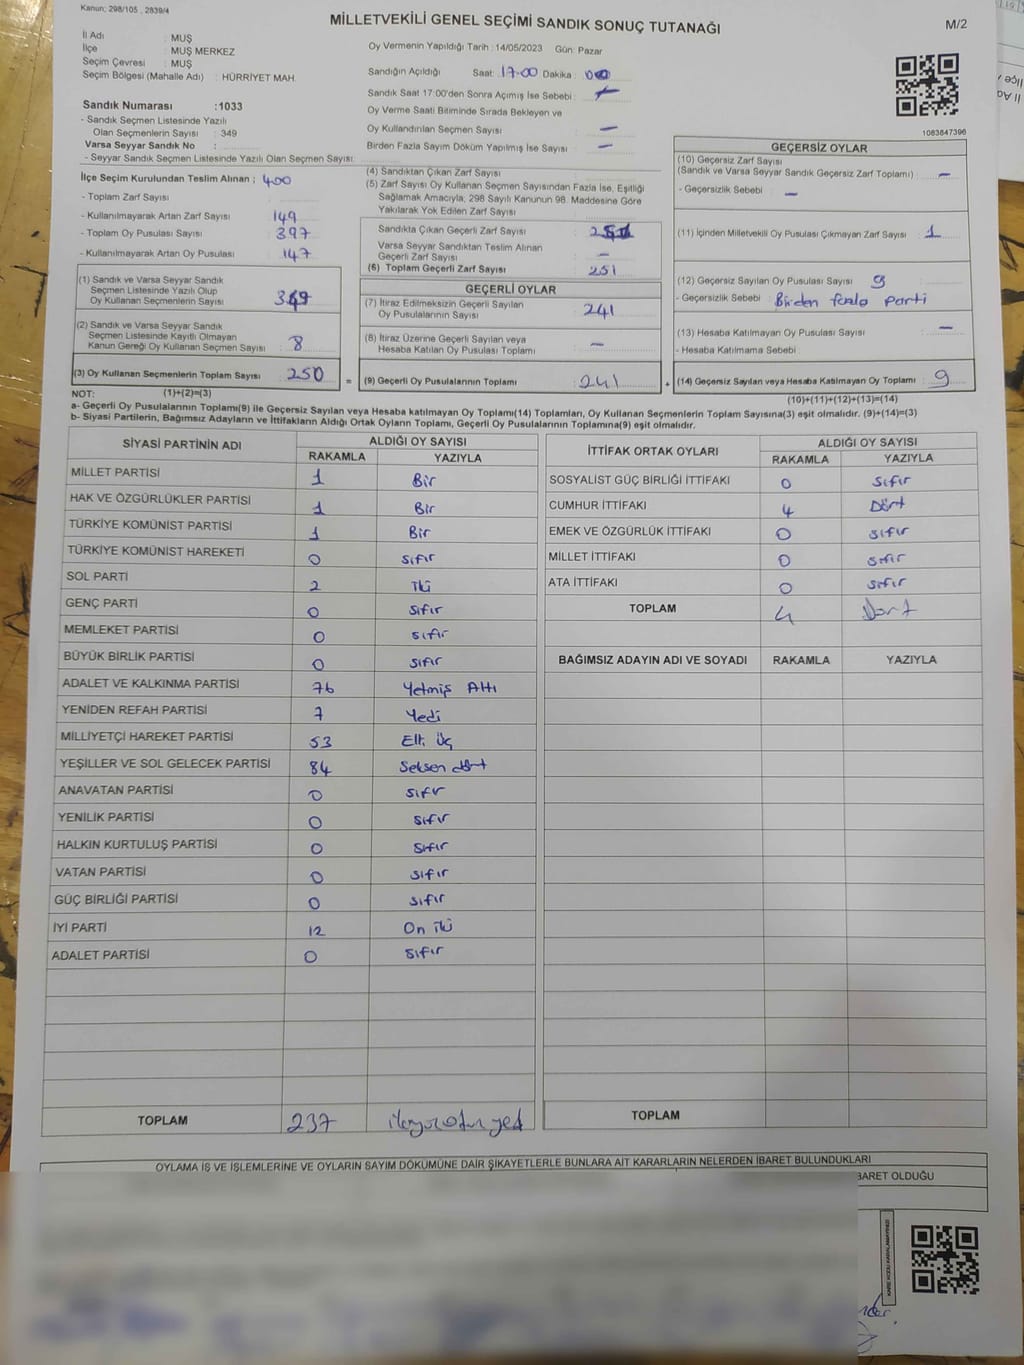 Kanun; 298/105 , 2839/4
MİLLETVEKİLİ GENEL SEÇİMİ SANDIK SONUÇ TUTANAĞI
M/2
İl Adı : MUŞ
İlçe : MUŞ MERKEZ
Seçim Çevresi : MUŞ
Seçim Bölgesi (Mahalle Adı) : HÜRRİYET MAH.
Sandık Numarası :1033
- Sandık Seçmen Listesinde Yazılı
Olan Seçmenlerin Sayısı : 349
Varsa Seyyar Sandık No :
- Seyyar Sandık Seçmen Listesinde Yazılı Olan Seçmen Sayısı:
İlçe Seçim Kurulundan Teslim Alınan ; 400
- Toplam Zarf Sayısı
- Kullanılmayarak Artan Zarf Sayısı 149
- Toplam Oy Pusulası Sayısı : 397
- Kullanılmayarak Artan Oy Pusulası : 147
(1) Sandık ve Varsa Seyyar Sandık
Seçmen Listesinde Yazılı Olup
Oy Kullanan Seçmenlerin Sayısı :
(2) Sandık ve Varsa Seyyar Sandık
Seçmen Listesinde Kayıtlı Olmayan
Kanun Gereği Oy Kullanan Seçmen Sayısı : 8
(3) Oy Kullanan Seçmenlerin Toplam Sayısı : 250
Oy Vermenin Yapıldığı Tarih : 14/05/2023 Gün: Pazar
Sandığın Açıldığı Saat: 17:00 Dakika : 00
Sandık Saat 17:00'den Sonra Açımış İse Sebebi : —
Oy Verme Saati Bitiminde Sırada Bekleyen ve
Oy Kullandırılan Seçmen Sayısı : —
Birden Fazla Sayım Döküm Yapılmış İse Sayısı : —
(4) Sandıktan Çıkan Zarf Sayısı :
(5) Zarf Sayısı Oy Kullanan Seçmen Sayısından Fazla İse, Eşitliği
Sağlamak Amacıyla, 298 Sayılı Kanunun 98. Maddesine Göre
Yakılarak Yok Edilen Zarf Sayısı :
Sandıkta Çıkan Geçerli Zarf Sayısı : 251
Varsa Seyyar Sandıktan Teslim Alınan
Geçerli Zarf Sayısı : —
(6) Toplam Geçerli Zarf Sayısı : 251
GEÇERLİ OYLAR
(7) İtiraz Edilmeksizin Geçerli Sayılan
Oy Pusulalarının Sayısı : 241
(8) İtiraz Üzerine Geçerli Sayılan veya
Hesaba Katılan Oy Pusulası Toplamı : —
= (9) Geçerli Oy Pusulalarının Toplamı : 241 +
1083847396
GEÇERSİZ OYLAR
(10) Geçersiz Zarf Sayısı
(Sandık ve Varsa Seyyar Sandık Geçersiz Zarf Toplamı) : —
- Geçersizlik Sebebi : —
(11) İçinden Milletvekili Oy Pusulası Çıkmayan Zarf Sayısı : 1
(12) Geçersiz Sayılan Oy Pusulası Sayısı : 9
- Geçersizlik Sebebi : Birden fazla parti
(13) Hesaba Katılmayan Oy Pusulası Sayısı : —
- Hesaba Katılmama Sebebi :
(14) Geçersiz Sayılan veya Hesaba Katılmayan Oy Toplamı : 9
NOT: (1)+(2)=(3) (10)+(11)+(12)+(13)=(14)
a- Geçerli Oy Pusulalarının Toplamı(9) ile Geçersiz Sayılan veya Hesaba katılmayan Oy Toplamı(14) Toplamları, Oy Kullanan Seçmenlerin Toplam Sayısına(3) eşit olmalıdır. (9)+(14)=(3)
b- Siyasi Partilerin, Bağımsız Adayların ve İttifakların Aldığı Ortak Oyların Toplamı, Geçerli Oy Pusulalarının Toplamına(9) eşit olmalıdır.
SİYASİ PARTİNİN ADI ALDIĞI OY SAYISI
RAKAMLA YAZIYLA
MİLLET PARTİSİ 1 Bir
HAK VE ÖZGÜRLÜKLER PARTİSİ 1 Bir
TÜRKİYE KOMÜNİST PARTİSİ 1 Bir
TÜRKİYE KOMÜNİST HAREKETİ 0 Sıfır
SOL PARTİ 2 İki
GENÇ PARTİ 0 Sıfır
MEMLEKET PARTİSİ 0 Sıfır
BÜYÜK BİRLİK PARTİSİ 0 Sıfır
ADALET VE KALKINMA PARTİSİ 76 Yetmiş Altı
YENİDEN REFAH PARTİSİ 7 Yedi
MİLLİYETÇİ HAREKET PARTİSİ 53 Elli Üç
YEŞİLLER VE SOL GELECEK PARTİSİ 84 Seksen dört
ANAVATAN PARTİSİ 0 Sıfır
YENİLİK PARTİSİ 0 Sıfır
HALKIN KURTULUŞ PARTİSİ 0 Sıfır
VATAN PARTİSİ 0 Sıfır
GÜÇ BİRLİĞİ PARTİSİ 0 Sıfır
İYİ PARTİ 12 On iki
ADALET PARTİSİ 0 Sıfır
TOPLAM 237
İTTİFAK ORTAK OYLARI ALDIĞI OY SAYISI
RAKAMLA YAZIYLA
SOSYALİST GÜÇ BİRLİĞİ İTTİFAKI 0 Sıfır
CUMHUR İTTİFAKI 4 Dört
EMEK VE ÖZGÜRLÜK İTTİFAKI 0 Sıfır
MİLLET İTTİFAKI 0 Sıfır
ATA İTTİFAKI 0 Sıfır
TOPLAM 4 Dört
BAĞIMSIZ ADAYIN ADI VE SOYADI RAKAMLA YAZIYLA
TOPLAM
OYLAMA İŞ VE İŞLEMLERİNE VE OYLARIN SAYIM DÖKÜMÜNE DAİR ŞİKAYETLERLE BUNLARA AİT KARARLARIN NELERDEN İBARET BULUNDUKLARI
BARET OLDUĞU